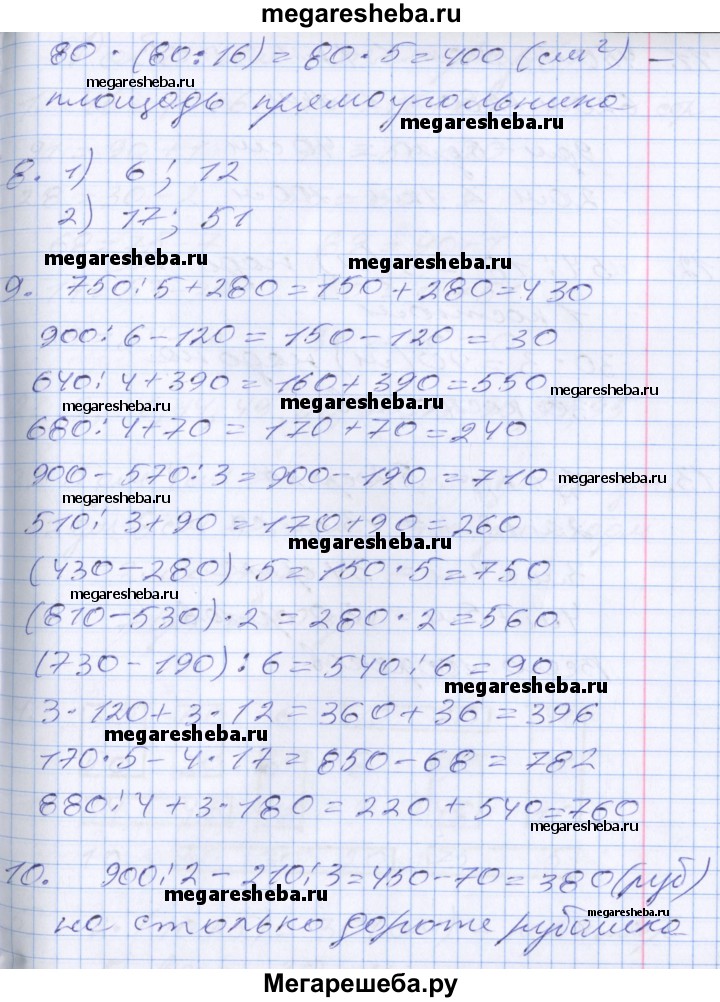 megaresheba.ru
80 · (80 : 16) = 80 · 5 = 400 (см²) –
megaresheba.ru
площадь прямоугольника
megaresheba.ru
8. 1) 6; 12
2) 17; 51
megaresheba.ru megaresheba.ru
9. 750 : 5 + 280 = 150 + 280 = 430
900 : 6 – 120 = 150 – 120 = 30
640 : 4 + 390 = 160 + 390 = 550
megaresheba.ru megaresheba.ru megaresheba.ru
680 : 4 + 70 = 170 + 70 = 240
900 – 570 : 3 = 900 – 190 = 710 megaresheba.ru
megaresheba.ru
510 : 3 + 90 = 170 + 90 = 260
megaresheba.ru
(430 – 280) · 5 = 150 · 5 = 750
megaresheba.ru
(810 – 530) · 2 = 280 · 2 = 560
(730 – 190) : 6 = 540 : 6 = 90
megaresheba.ru
3 · 120 + 3 · 12 = 360 + 36 = 396
megaresheba.ru
170 · 5 – 4 · 17 = 850 – 68 = 782
880 : 4 + 3 · 180 = 220 + 540 = 760
megaresheba.ru
10. 900 : 2 – 210 : 3 = 450 – 70 = 380 (руб)
megaresheba.ru megaresheba.ru
на столько дороже рубашка
megaresheba.ru
Мегарешеба.ру